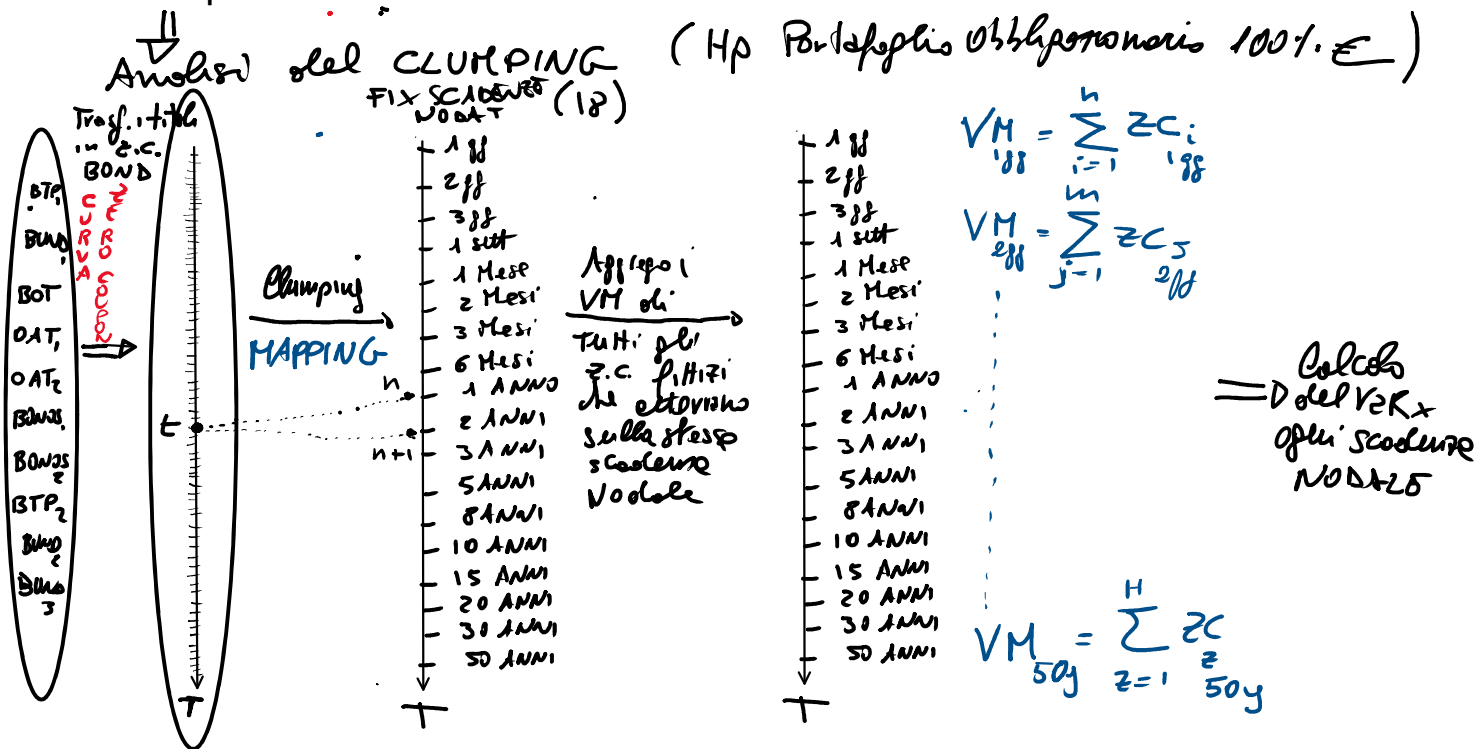 Analisi del CLUMPING (Hp Portafoglio Obbligazionario 100% €)
FIX SCADENZE (18)
NODALI
Trasf. i titoli
in Z.C.
BOND
CURVA
ZERO COUPON
BTP1
BUND1
BOT
OAT1
OAT2
BONOS1
BONOS2
BTP2
BUND2
BUND3
t
T
Clumping
MAPPING
n
n+1
1 gg
2 gg
3 gg
1 sett
1 Mese
2 Mesi
3 Mesi
6 Mesi
1 ANNO
2 ANNI
3 ANNI
5 ANNI
8 ANNI
10 ANNI
15 ANNI
20 ANNI
30 ANNI
50 ANNI
T
Aggrego i
VM di
Tutti gli
Z.C. fittizi
che
sulla stessa
scadenza
Nodale
1 gg
2 gg
3 gg
1 sett
1 Mese
2 Mesi
3 Mesi
6 Mesi
1 ANNO
2 ANNI
3 ANNI
5 ANNI
8 ANNI
10 ANNI
15 ANNI
20 ANNI
30 ANNI
50 ANNI
T
VM 1gg = n Σ i=1 ZC i 1gg
VM 2gg = m Σ j=1 ZC J 2gg
VM 50y = H Σ z=1 ZC z 50y
Calcolo
del VaR x
ogni scadenza
NODALE